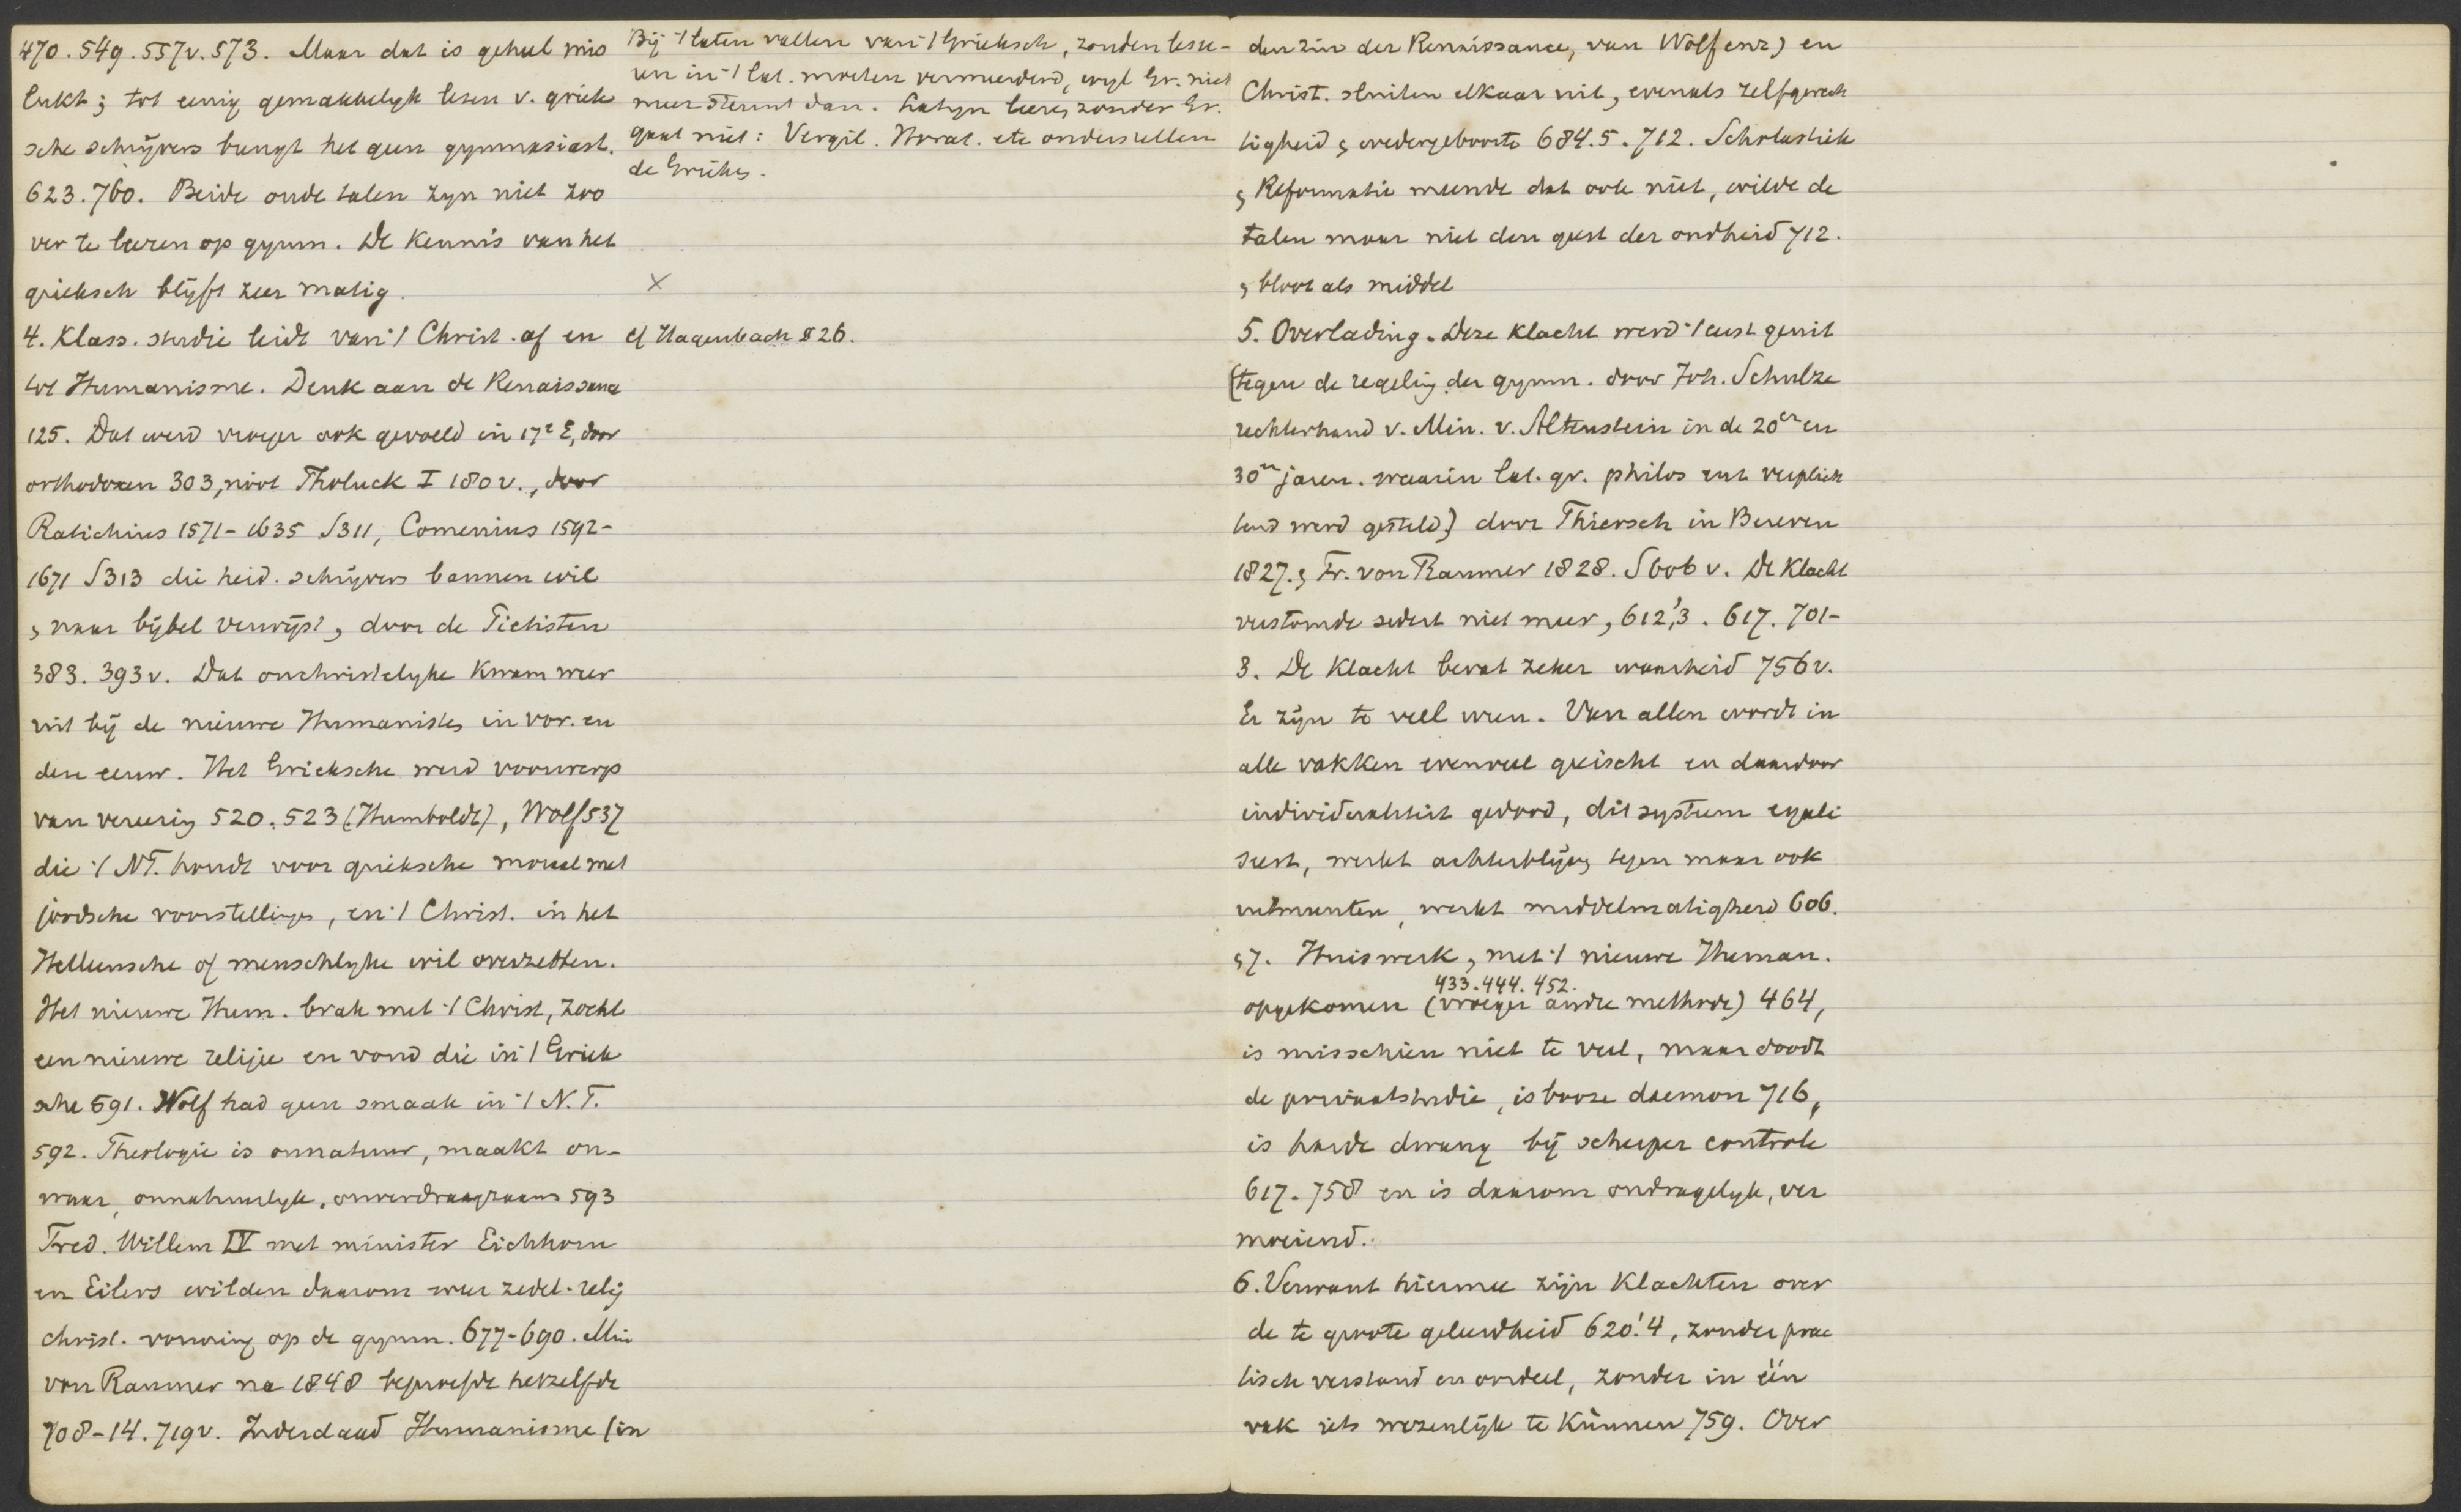 470. 549. 557v. 573. Maar dat is geheel mis
lukt; tot eenig gemakkelyk lesen v. griek
sche schrijvers brengt het geen gymnasiast.
623. 760. Beide oude talen zyn niet zoo
ver te leeren op gymn. De kennis van het
grieksch blijft zeer matig.
4. Klass. studie leidt van 't Christ. af en
tot Humanisme. Denk aan de Renaissance
125. Dat werd vroeger ook gevoeld in 17e E, door
orthodoxen 303, noot Tholuck I 180 v., door
Ratichius 1571-1635 S311, Comenius 1592-
1671 S313 die heid. schrijvers bannen wil
, naar bijbel verwijst, door de Pietisten
383. 393v. Dat onchristelyke kwam weer
uit bij de nieuwe Humanisten in vor. en
deze eeuw. Het Grieksche werd voorwerp
van vereering 520. 523 (Humboldt), Wolf 537
die 't NT. houdt voor grieksche moraal met
joodsche voorstellingen, en 't Christ. in het
Helleensche of menschlyke wil overzetten.
Het nieuwe Hum. brak met 't Christ, zocht
een nieuwe religie en vond die in 't Griek
sche 591. Wolf had geen smaak in 't N.T.
592. Theologie is onnatuur, maakt on-
waar, onnatuurlyk, onverdraagzaam 593
Fred. Willem IV met minister Eichhorn
en Eilers wilden daarom weer zedel. relig
christ. vorming op de gymn. 677-690. Min
von Raumer na 1848 beproefde hetzelfde
708-14. 719v. Inderdaad Humanisme (in
Bij 't laten vallen van 't Grieksch, zouden lesu-
ren in 't Lat. moeten vermeerderd, wyl Gr. niet
meer steunt dan. Latyn leeren zonder Gr.
gaat niet: Vergil. Horat. etc onderstellen
de Grieken.
X
cf Hagenbach § 26.
den zin der Renaissance, van Wolf enz) en
Christ. sluiten elkaar uit, evenals zelfgerech
tigheid , wedergeboorte 684.5. 712. Scholastiek
, Reformatie meende dat ook niet, wilde de
talen maar niet den geest der oudheid 712.
, bloot als middel
5. Overlading. Deze klacht werd 't eerst geuit
(tegen de regeling der gymn. door Joh. Schulze
rechterhand v. Min. v. Altenstein in de 20er en
30er jaren. waarin Lat. gr. philos enz verplich
tend werd gesteld) door Thiersch in Beieren
1827. , Fr. von Raumer 1828. S 606 v. De klacht
verstomde sedert niet meer, 612,!3. 617. 701-
3. De klacht bevat zeker waarheid 756v.
Er zijn te veel uren. Van allen wordt in
alle vakken evenveel geëischt en daardoor
individualiteit gedood, dit systeem egali
seert, werkt achterblijven tegen maar ook
uitmunten, werkt middelmatigheid 606.
, 7. Huiswerk, met 't nieuwe Human.
433. 444. 452.
opgekomen (vroeger andre methode) 464,
is misschien niet te veel, maar doodt
de privaatstudie, is booze daemon 716,
is harde dwang bij scherper controle
617. 758 en is daarom ondragelyk, ver
moeiend.
6. Verwant hiermee zijn klachten over
de te groote geleerdheid 620!4, zonder prac
tisch verstand en oordeel, zonder in één
vak iets wezenlijk te kunnen 759. Over